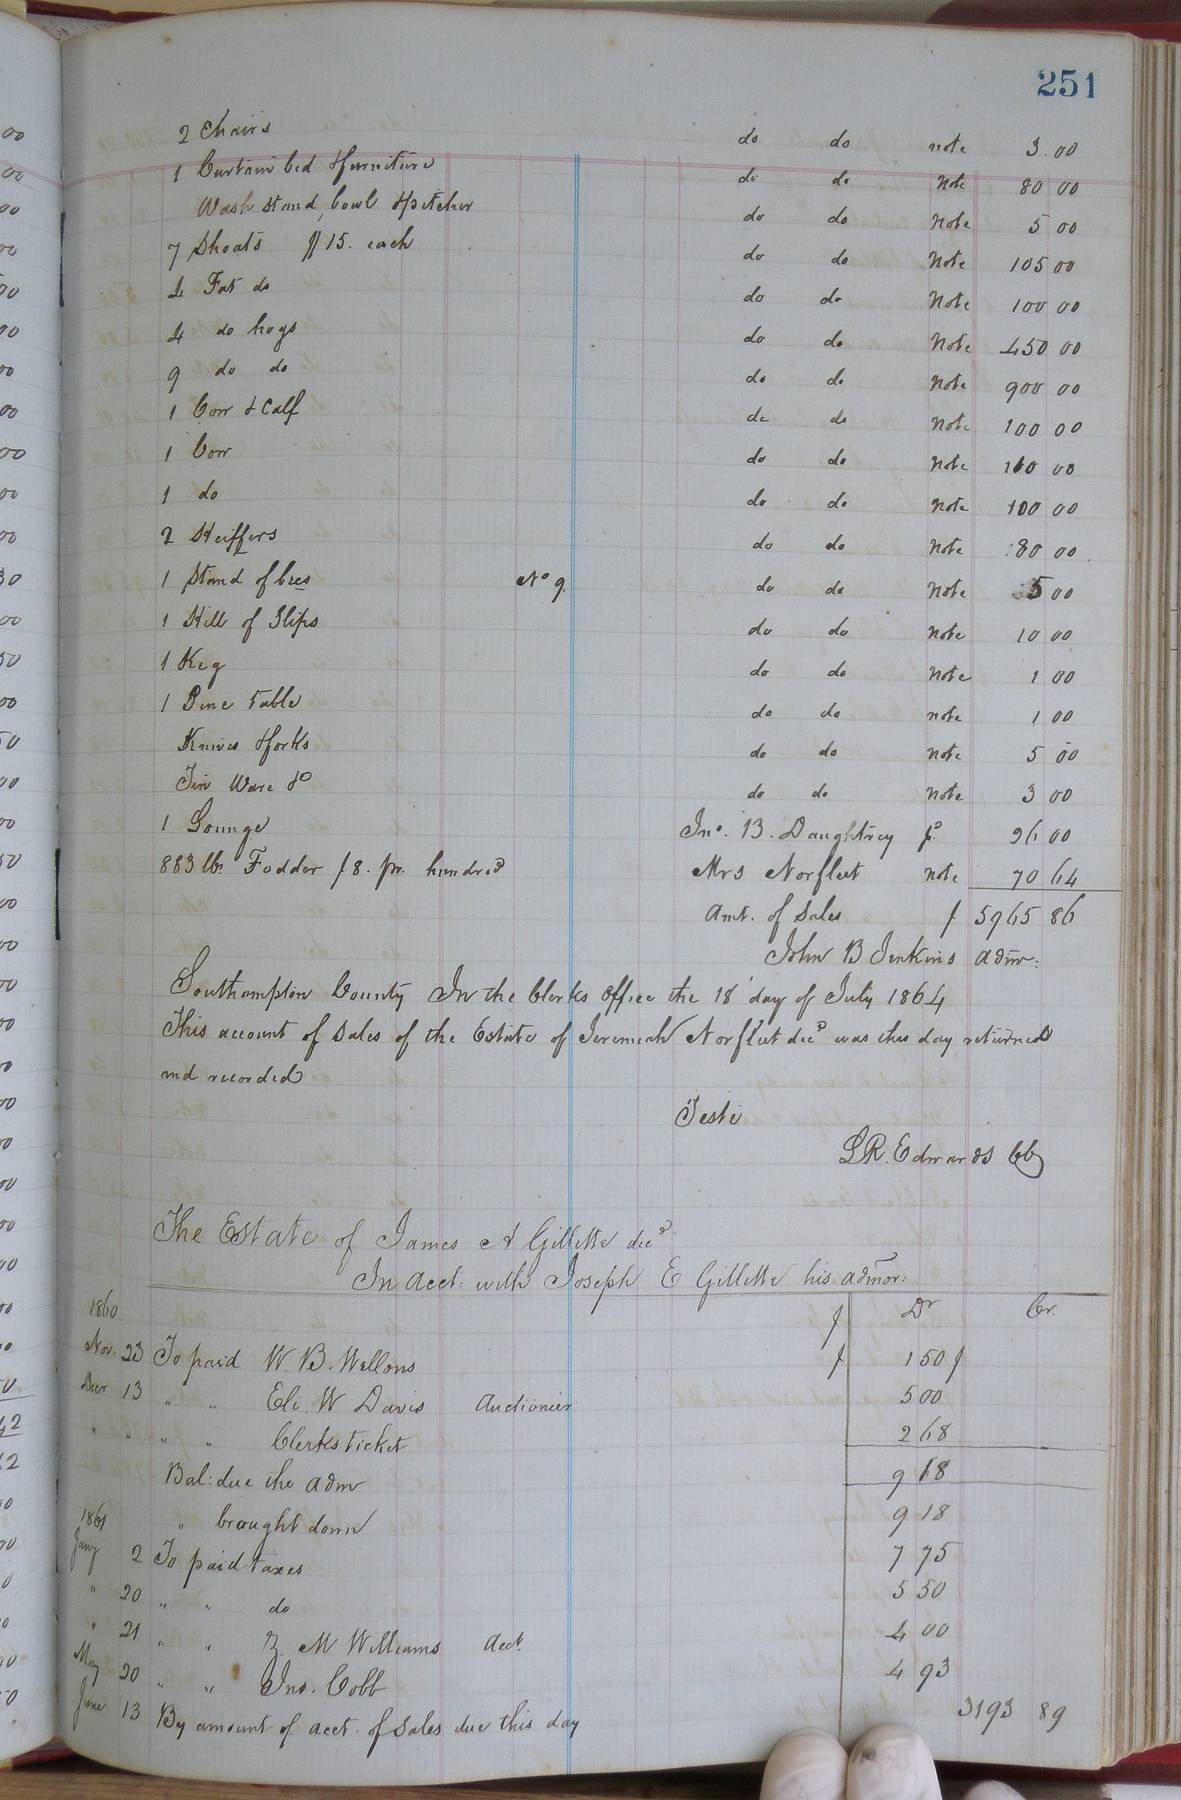 251
2 Chairs do do note 3.00
1 Curtain bed & furniture do do Note 80 00
Wash stand, bowl & pitcher do do Note 5 00
7 Shoats $15. each do do Note 105 00
4 Fat do do do Note 100 00
4 do hogs do do Note 450 00
9 do do do do Note 900 00
1 Cow & Calf do do Note 100 00
1 Cow do do Note 100 00
1 do do do Note 100 00
2 Heiffers do do Note 80 00
1 Stand of bees No 9. do do Note 5 00
1 Hill of Slips do do Note 10 00
1 Keg do do Note 1 00
1 Pine table do do note 1 00
Knives & forks do do note 5 00
Tin Ware &c do do note 3 00
1 Lounge Jno. B. Daughtrey pd 26 00
883 lbs Fodder $8. pr. hundred Mrs Norfleet note 70 64
Amt. of Sales $ 5965 86
John B Jenkins admr:
Southampton County In the Clerks office the 18 day of July 1864
This account of sales of the Estate of Jeremiah Norfleet decd was this day returned
and recorded
Teste
L.R. Edwards CC
The Estate of James A Gillette decd
In acct: with Joseph E Gillette his admor:
1860 $ Dr Cr.
Nov. 23 To paid W. B. Wellons $ 1 50 $
Decr 13 " " Eli. W Davis Auctionier 5 00
" " " " Clerks ticket 2 68
Bal: due the admr 9 18
1861 " brought down 9 18
Jany 2 To paid taxes 7 75
" 20 " " do 5 50
" 21 " " M Williams Acct. 4 00
May 20 " " Jno. Cobb 4 93
June 13 By amount of acct. of sales due this day 3193 89